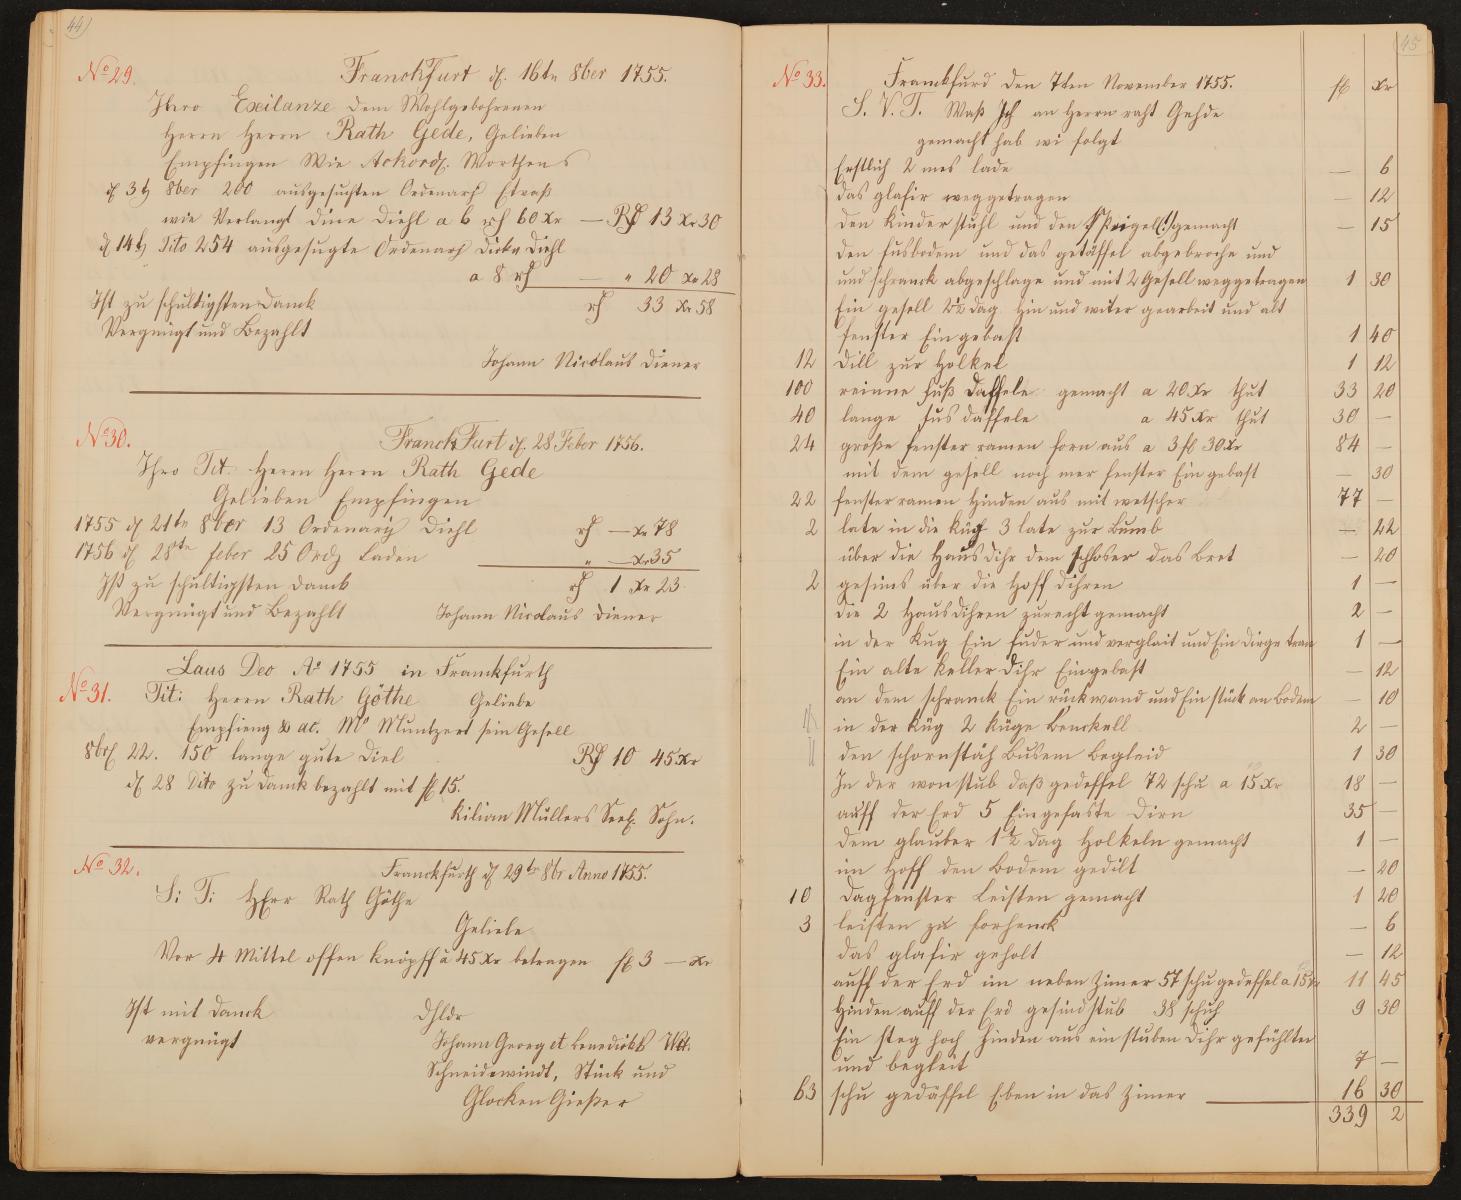 44
No 29.
Franckfurt d. 16tn 8ber 1755.
Ihro Exilanze dem Wohlgebohrenen
Herrn Herrn Rath Gede, Gelieben
Empfingen Wie Ackord. Worthens
d 3t 8ber 200 ausgesuchten Ordenary Etwaß
wie Verlangt dine Diehl a 6 rf 60 Xr — Rf 13 Xr 30
d 14t Dito 254 ausgesugte Ordenary Dicke Diehl
a 8 rf — " 20 Xr 28
Ist zu schultigsten Danck rf 33 Xr 58
Vergnügt und Bezahlt
Johann Nicolaus Diener
No 30.
Franckfurt d. 28 Feber 1756.
Ihro Tit. Herrn Herrn Rath Gede
Gelieben Empfingen
1755 d 21tn 8ber 13 Ordenary Diehl rf — Xr 78
1756 d 28tn feber 25 Ord Laden " — Xr 35
Ist zu schultigsten Danck rf 1 Xr 23
Vergnügt und Bezahlt Johann Nicolaus Diener
Laus Deo Ao 1755 in Franckfurth
No 31. Tit: Herrn Rath Göthe Geliebe
Empfieng & ac. Mo Muntzert sein Gesell
8br 22. 150 lange gute Diel Rf 10 45 Xr
d 28 Dito zu Danck bezahlt mit fl 15.
Kilian Müllers Seel. Sohn.
No 32.
Franckfurth d 29tn 8br Anno 1755.
S: T: HErr Rath Göthe
Geliebe
Vor 4 Mittel offen Knöpff à 45 Xr betragen fl 3 — Xr
Ist mit Danck Dhldr
vergnügt Johann Georg et Benedickt
Schneidewindt, Stück und
Glocken Gießer
45
No 33. Franckfurd den 7ten November 1755. fl Xr
S. V. T. Waß Ich an Herrn raht Gehde
gemacht hab wi folgt
Erstlich 2 mes lade — 6
das glasir weggetragen — 12
den Kinderstuhl und den Speigel(!) gemacht — 15
den fusbodem und das getäffel abgebroche und
und schranck abgeschlage und mit 2 Gesell weggetragen 1 30
Ein gesell 2½ dag hin und witer gearbeit und alt
fenster Eingebast 1 40
12 Dill zur Holkel 1 12
100 reinne fuß daffele gemacht a 20 Xr thut 33 20
40 lange fus daffele a 45 Xr thut 30 —
24 große fenster ramen forn aus a 3 fl 30 Xr 84 —
mit dem gesell noch mer fenster Eingebast — 30
22 fensterramen hinden aus mit wetscher 77 —
2 late in die Küg 3 late zur Bumb — 22
über die Haus Dihr dem schloser das Bret — 20
2 gesims über die Hoff Dihren 1 —
die 2 Haus Dihren zurecht gemacht 2 —
in der Kug Ein fuder und vergleit und Ein Dirge tran 1 —
Ein alte Keller Dihr Eingebast — 12
an dem schranck Ein rückwand und Ein stück am Bodem — 10
in der Küg 2 Küge Benckell 2 —
den schornstäh Busem begleid 1 30
In der wonstub daß gedeffel 72 schu a 15 Xr 18 —
auff der Erd 5 Eingefaste Dirn 35 —
dem glauber 1½ dag Holkeln gemacht 1 —
im Hoff den Bodem gedilt — 20
10 Dagfenster Leisten gemacht 1 20
3 leisten zu forhenck — 6
das glasir geholt — 12
auff der Erd im neben Zimer 57 schu gedeffel a 15 Xr 11 45
hinden auff der Erd gesindstub 38 schuh 9 30
Ein steg hoch hinden aus ein stuben Dihr gefühlter
und begleit 7 —
63 schu gedäffel Eben in das Zimer 16 30
339 2